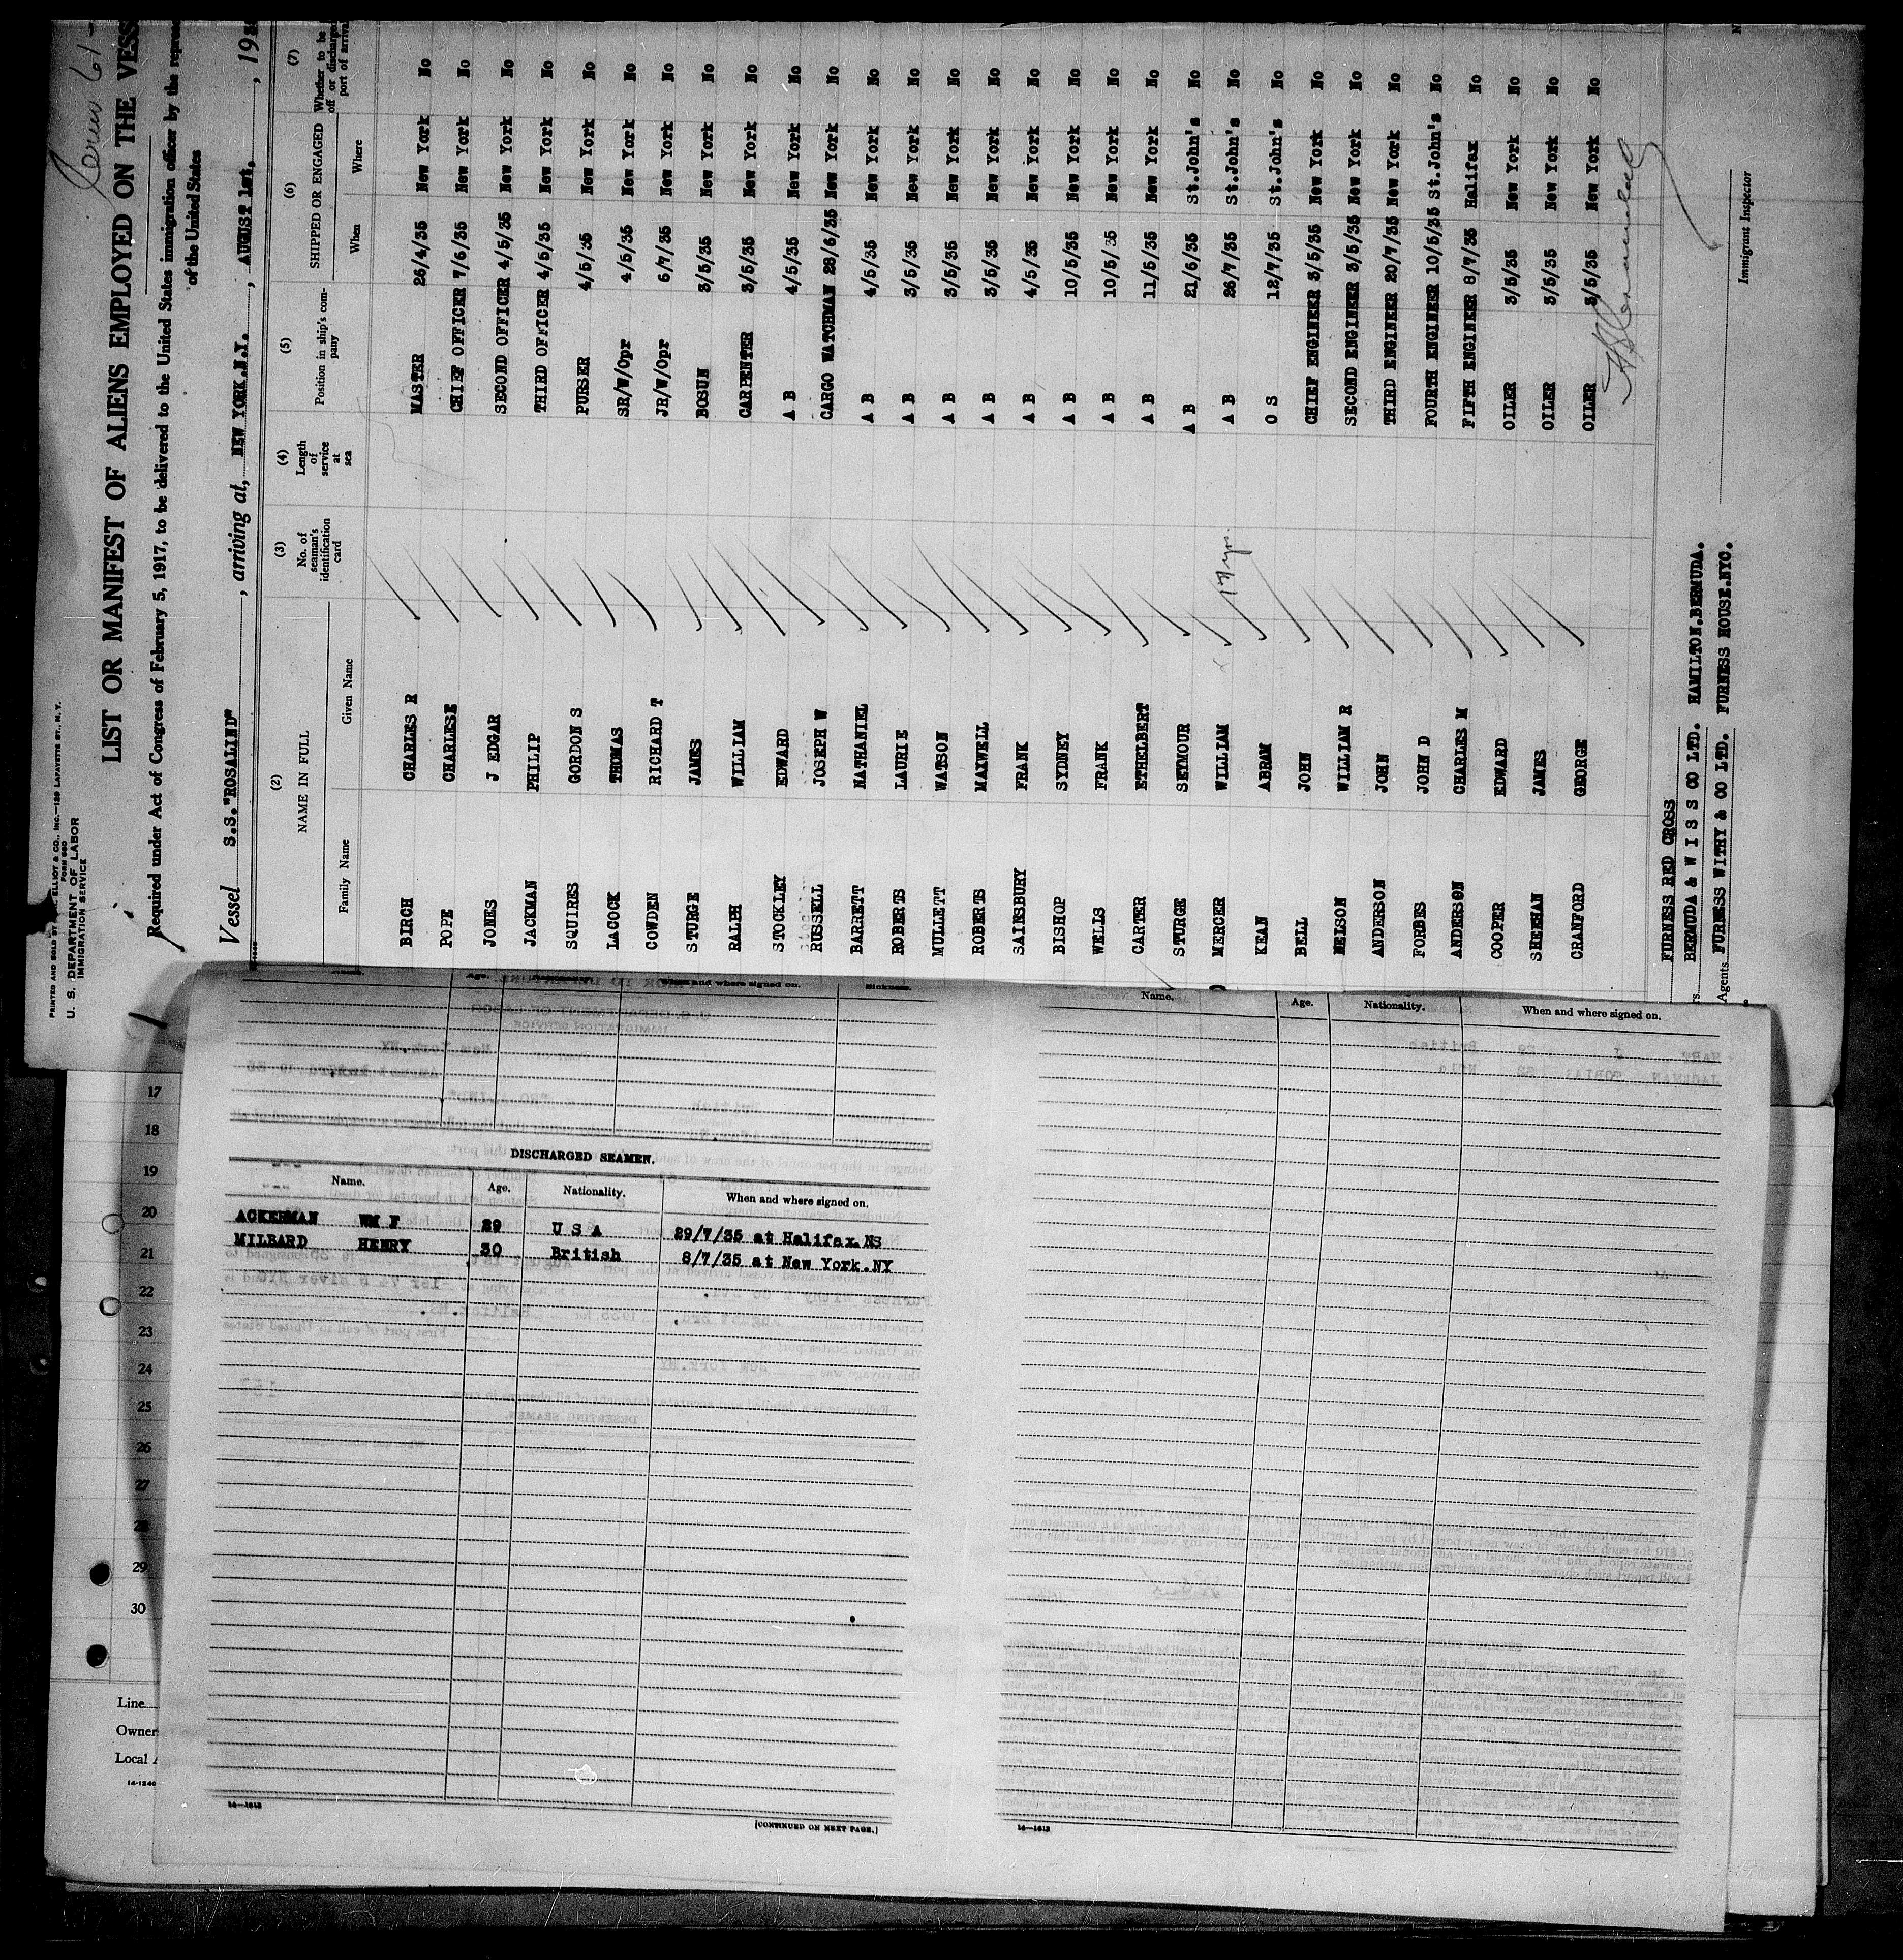 Crew 61-
PRINTED AND SOLD BY ELLIOT & CO., INC.—129 LAFAYETTE ST., N. Y.
FORM 680
U. S. DEPARTMENT OF LABOR
IMMIGRATION SERVICE
LIST OR MANIFEST OF ALIENS EMPLOYED ON THE VESS
Required under Act of Congress of February 5, 1917, to be delivered to the United States immigration officer by the repres
of the United States
Vessel S.S."ROSALIND", arriving at, NEW YORK.N.Y., AUGUST 1st., 19
(2) (3) (4) (5) (6) (7)
NAME IN FULL No. of seaman's identification card Length of service at sea Position in ship's company SHIPPED OR ENGAGED Whether to be off or discharged port of arrival
Family Name Given Name When Where
BIRCH CHARLES R MASTER 26/4/35 New York No
POPE CHARLESE CHIEF OFFICER 7/6/35 New York No
JONES J EDGAR SECOND OFFICER 4/5/35 New York No
JACKMAN PHILIP THIRD OFFICER 4/5/35 New York No
SQUIRES GORDON S PURSER 4/5/35 New York No
LACOCK THOMAS SR/W/Opr 4/5/35 New York No
COWDEN RICHARD T JR/W/Opr 6/7/35 New York No
STURGE JAMES BOSUN 3/5/35 New York No
RALPH WILLIAM CARPENTER 3/5/35 New York No
STOCKLEY EDWARD A B 4/5/35 New York No
RUSSELL JOSEPH W CARGO WATCHMAN 28/6/35 New York No
BARRETT NATHANIEL A B 4/5/35 New York No
ROBERTS LAURIE A B 3/5/35 New York No
MULLETT WATSON A B 3/5/35 New York No
ROBERTS MAXWELL A B 3/5/35 New York No
SAINSBURY FRANK A B 4/5/35 New York No
BISHOP SYDNEY A B 10/5/35 New York No
WELLS FRANK A B 10/5/35 New York No
CARTER ETHELBERT A B 11/5/35 New York No
STURGE SEYMOUR A B 21/6/35 St.John's No
MERCER WILLIAM 17 yrs A B 26/7/35 St.John's No
KEAN ABRAM O S 12/7/35 St.John's No
BELL JOHN CHIEF ENGINEER 3/5/35 New York No
NELSON WILLIAM R SECOND ENGINEER 3/5/35 New York No
ANDERSON JOHN THIRD ENGINEER 20/7/35 New York No
FORBES JOHN D FOURTH ENGINEER 10/5/35 St.John's No
ANDERSON CHARLES M FIFTH ENGINEER 8/7/35 Halifax No
COOPER EDWARD OILER 3/5/35 New York No
SHEEHAN JAMES OILER 3/5/35 New York No
CRANFORD GEORGE OILER 3/5/35 New York No
FURNESS RED CROSS
BERMUDA & W I S S CO LTD. HAMILTON.BERMUDA.
Agents. FURNESS WITHY & CO LTD. FURNESS HOUSE.NYC.
Immigrant Inspector
Age. When and where signed on. Sickness.
DISCHARGED SEAMEN.
Name. Age. Nationality. When and where signed on.
ACKERMAN WM F 29 U S A 29/7/35 at Halifax.NS
MILBARD HENRY 30 British 8/7/35 at New York.NY
14—1612
[CONTINUED ON NEXT PAGE.]
Name. Age. Nationality. When and where signed on.
14—1612
17
18
19
20
21
22
23
24
25
26
27
28
29
30
Line
Owner
Local
14-1240